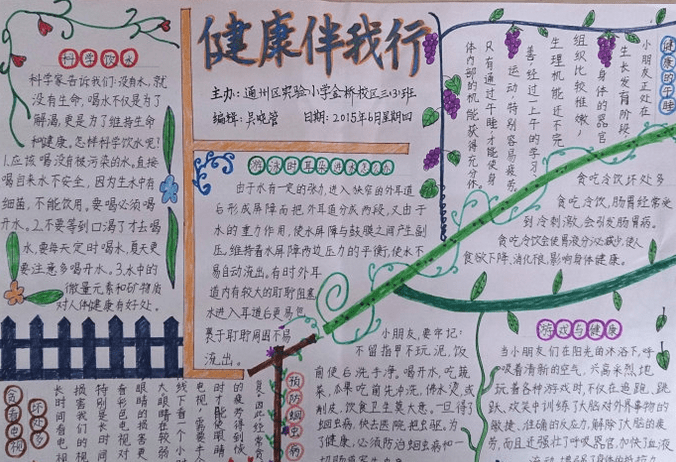 健康伴我行
主办：通州区实验小学金桥校区三(3)班
编辑：吴晓管 日期：2015年6月星期四
科学饮水
科学家告诉我们：没有水，就
没有生命。喝水不仅是为了
解渴，更是为了维持生命
和健康。怎样科学饮水呢？
1.应该喝没有被污染的水。直接
喝自来水不安全，因为生水中有
细菌，不能饮用。要喝必须喝
开水。2.不要等到口渴了才去喝
水，要每天定时喝水，夏天更
要注意多喝开水。3.水中的
微量元素和矿物质
对人体健康有好处。
游泳时耳朵进水怎么办
由于水有一定的张力，进入狭窄的外耳道
后形成屏障而把外耳道分成两段，又由于
水的重力作用，使水屏障与鼓膜之间产生副
压，维持着水屏障两边压力的平衡，使水不
易自动流出。有时外耳
道内有较大的耵聍阻塞
水进入耳道后更易包
裹于耵聍周围不易
流出。
健康的午睡
小朋友正处在
生长发育阶段，
身体的器官
组织比较稚嫩，
生理机能还不完
善，经过一上午的学习、
运动，特别容易疲劳，
只有通过午睡才能使身
体内部的机能获得充分休
贪吃冷饮坏处多
贪吃冷饮，肠胃经常受
到冷刺激，会引发肠胃病。
贪吃冷饮会使胃液分泌减少，使人
食欲下降，消化很，影响身体健康。
游戏与健康
当小朋友们在阳光的沐浴下，呼
吸着清新的空气，兴高采烈地
玩着各种游戏时，不仅在追跑、跳
跃、欢笑中训练了大脑对外界事物的
敏捷、准确的反应力，解除了大脑的疲
劳，而且还强壮了呼吸器官，加快了血液
预防蛔虫病
小朋友，要牢记：
不留指甲不玩泥，饭
前便后洗手净。喝开水，吃蔬
菜，瓜果吃前先冲洗，沸水烫，或
削皮，饮食卫生莫大意。一旦得了
蛔虫病，快去医院把虫驱。为
了健康，必须防治蛔虫病和一
贪看电视
坏处多
长时间看电视
损害我们的
特别是长时间
看彩色电视对
眼睛的损害更
大眼睛在较弱
线下看一个小时
电视，需要半个
时才能使眼睛
的疲劳得到恢
复，因此经常贪